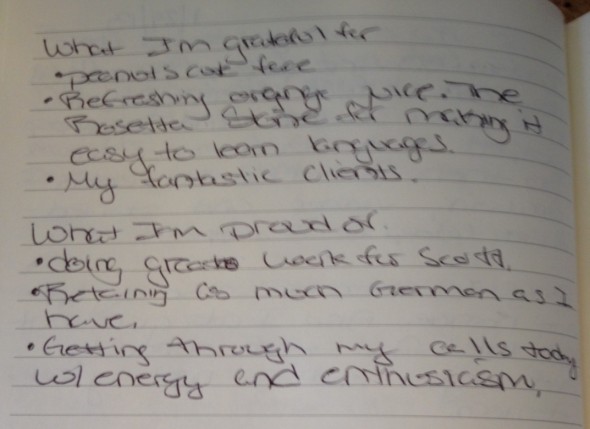 What I'm grateful for
• peanut's cute face
• Refreshing orange juice. The
Rosetta Stone for making it
easy to learn languages.
• My fantastic clients.
What I'm proud of.
• doing great work for Scott.
• Retaining as much German as I
have.
• Getting through my calls today
w/ energy and enthusiasm.